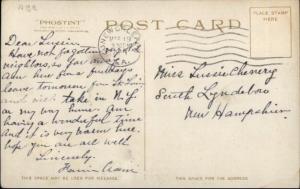 "PHOSTINT"
POST CARD
PLACE STAMP HERE
Dear Lussie
Have not forgotten my old
neighbors, so far away.
Am here for a few days
leave tomorrow for St. Louis
and will take in N.Y.
on my way home. Am
having a wonderful time
and it is very warm here.
hope you are all well
Sincerely,
Miss Lussie Cheney
South Lyndeboro
New Hampshire
THIS SPACE MAY BE USED FOR MESSAGE.
THIS SPACE FOR ADDRESS ONLY.